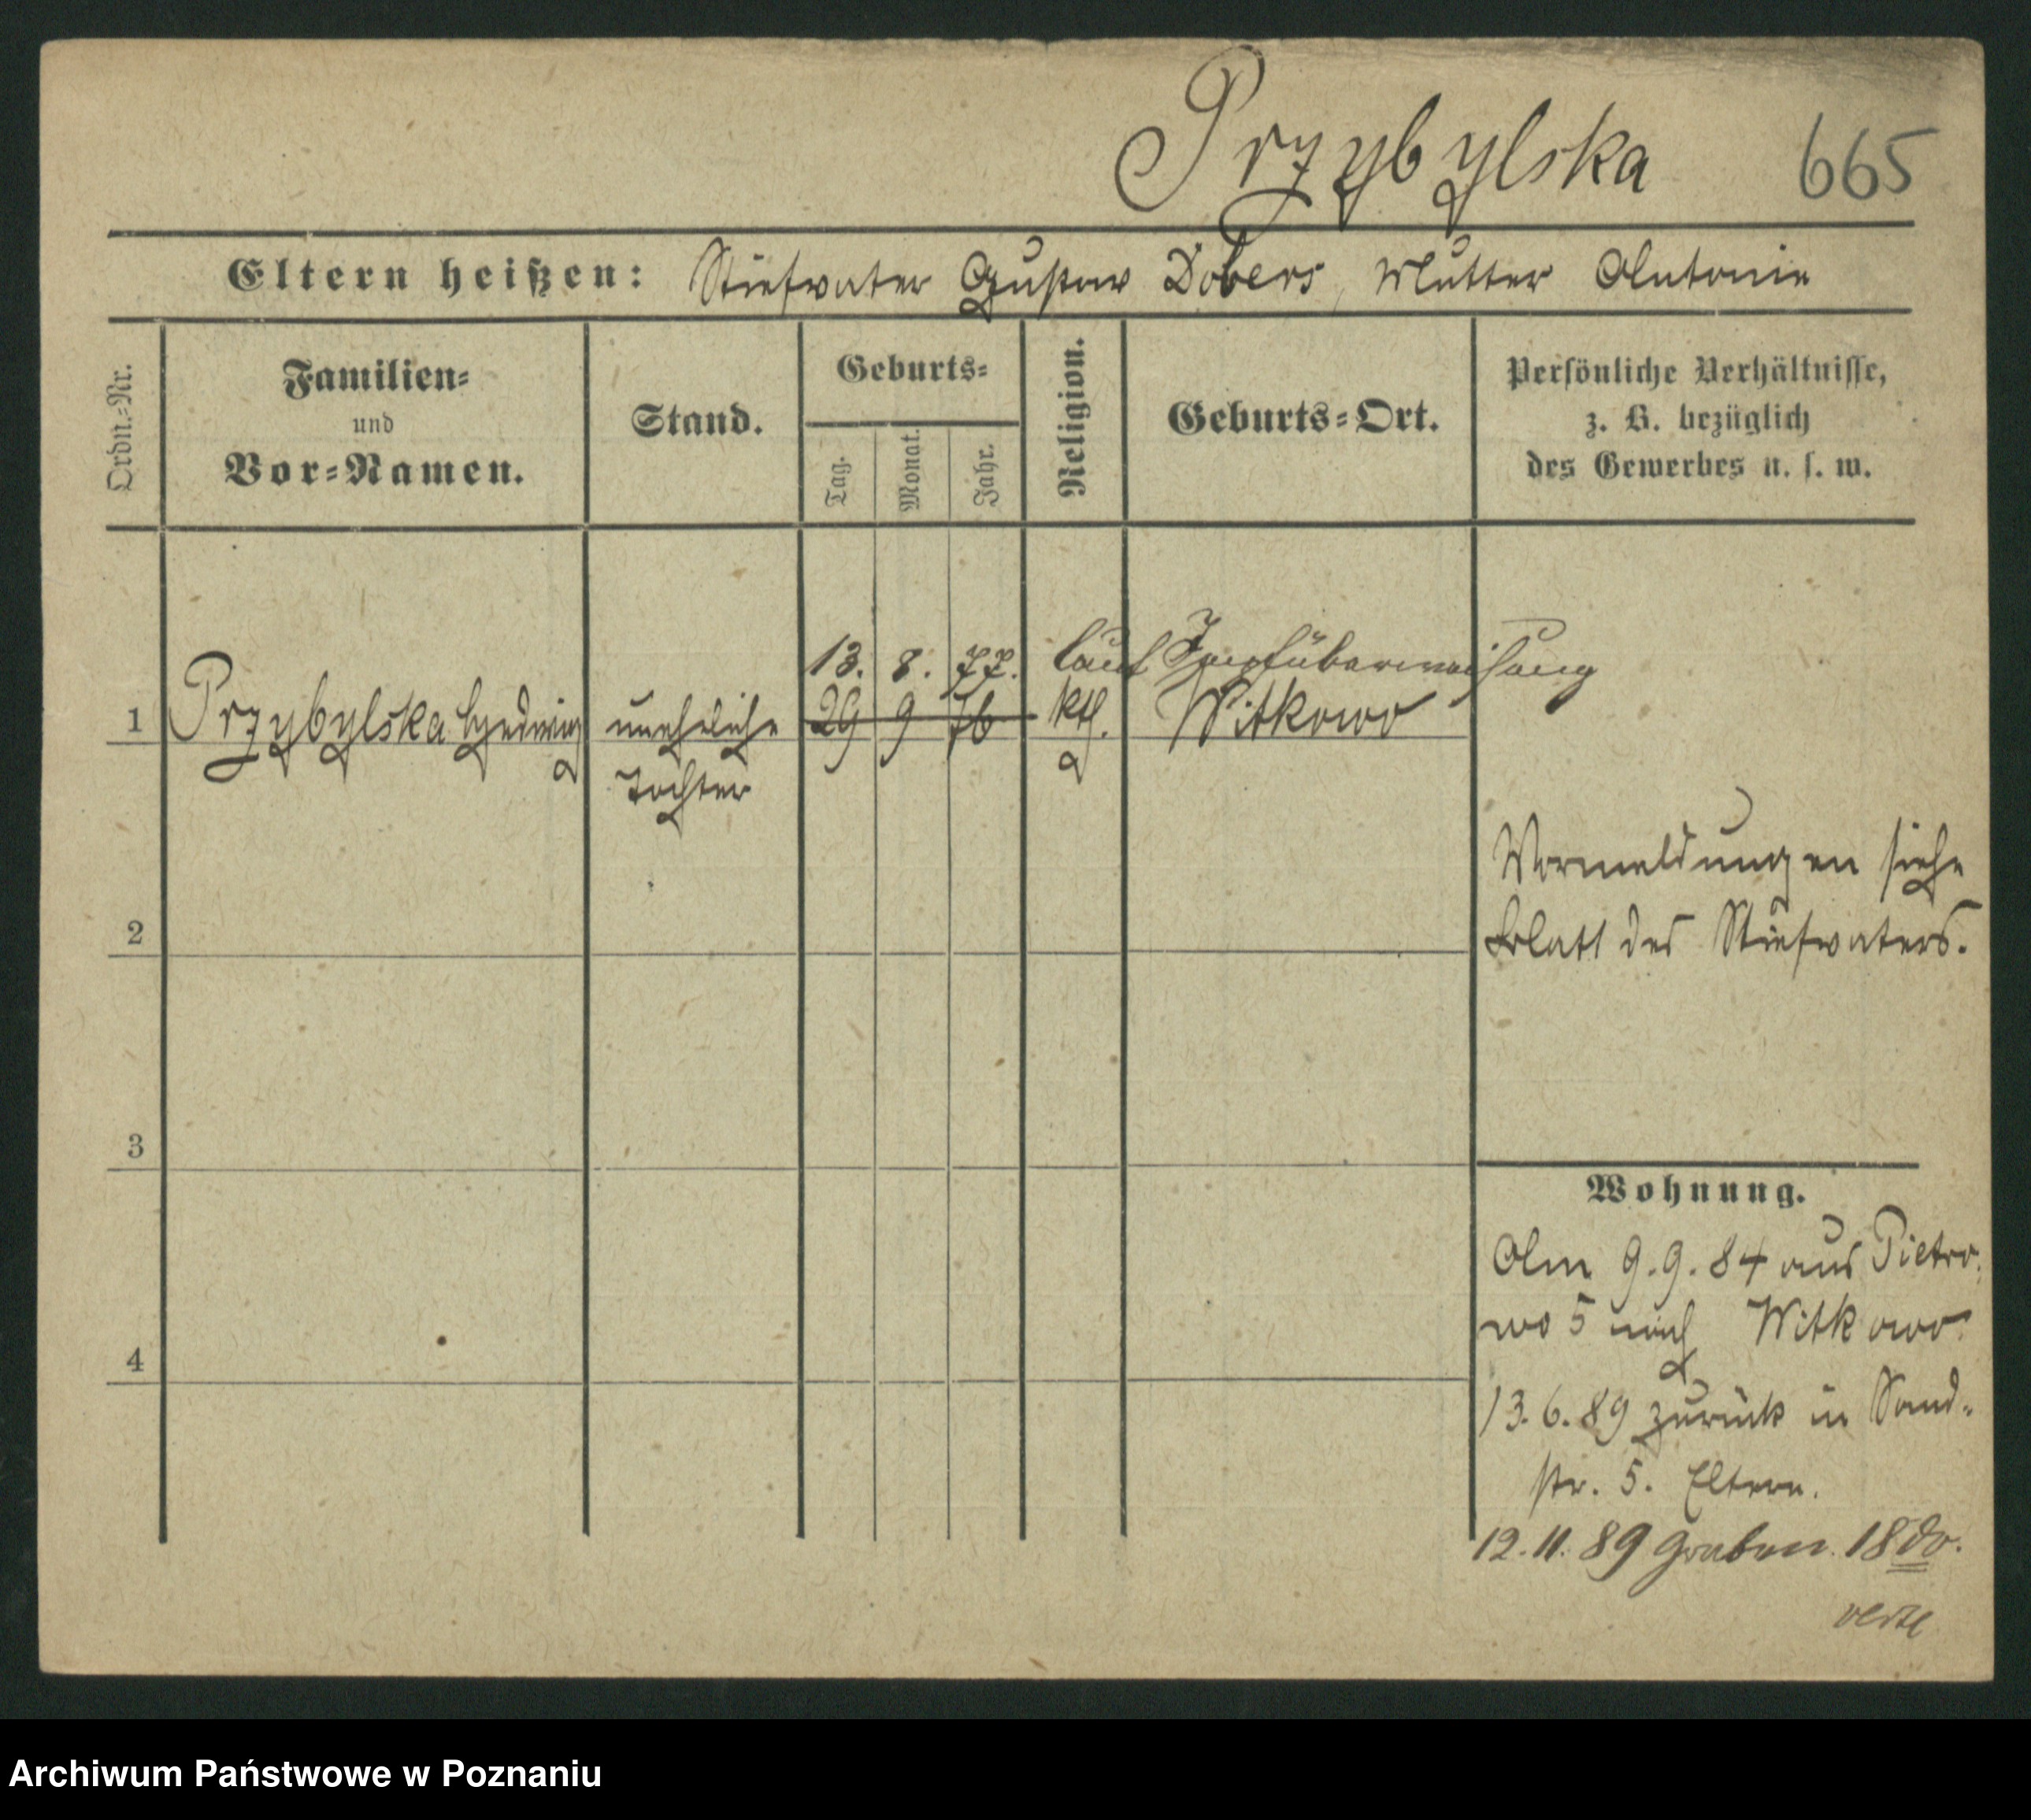 Przybylska 665
Eltern heißen: Stiefvater Gustav Dobers, Mutter Antonie
Ordn.-Nr.
Familien-
und
Vor-Namen.
Stand.
Geburts-
Tag.
Monat.
Jahr.
Religion.
Geburts-Ort.
Persönliche Verhältnisse,
z. B. bezüglich
des Gewerbes u. s. w.
13. 8. 77. laut Impfüberweisung
1 Przybylska Hedwig uneheliche 29 9 76 kth. Witkowo
Tochter
Vormeldungen siehe
Blatt des Stiefvaters.
2
3
4
Wohnung.
Am 9.9.84 aus Pietro-
wo 5 nach Witkowo
13.6.89 zurück in Sand-
str. 5. Eltern.
12.11.89 Graben 18 do.
verte
Archiwum Państwowe w Poznaniu